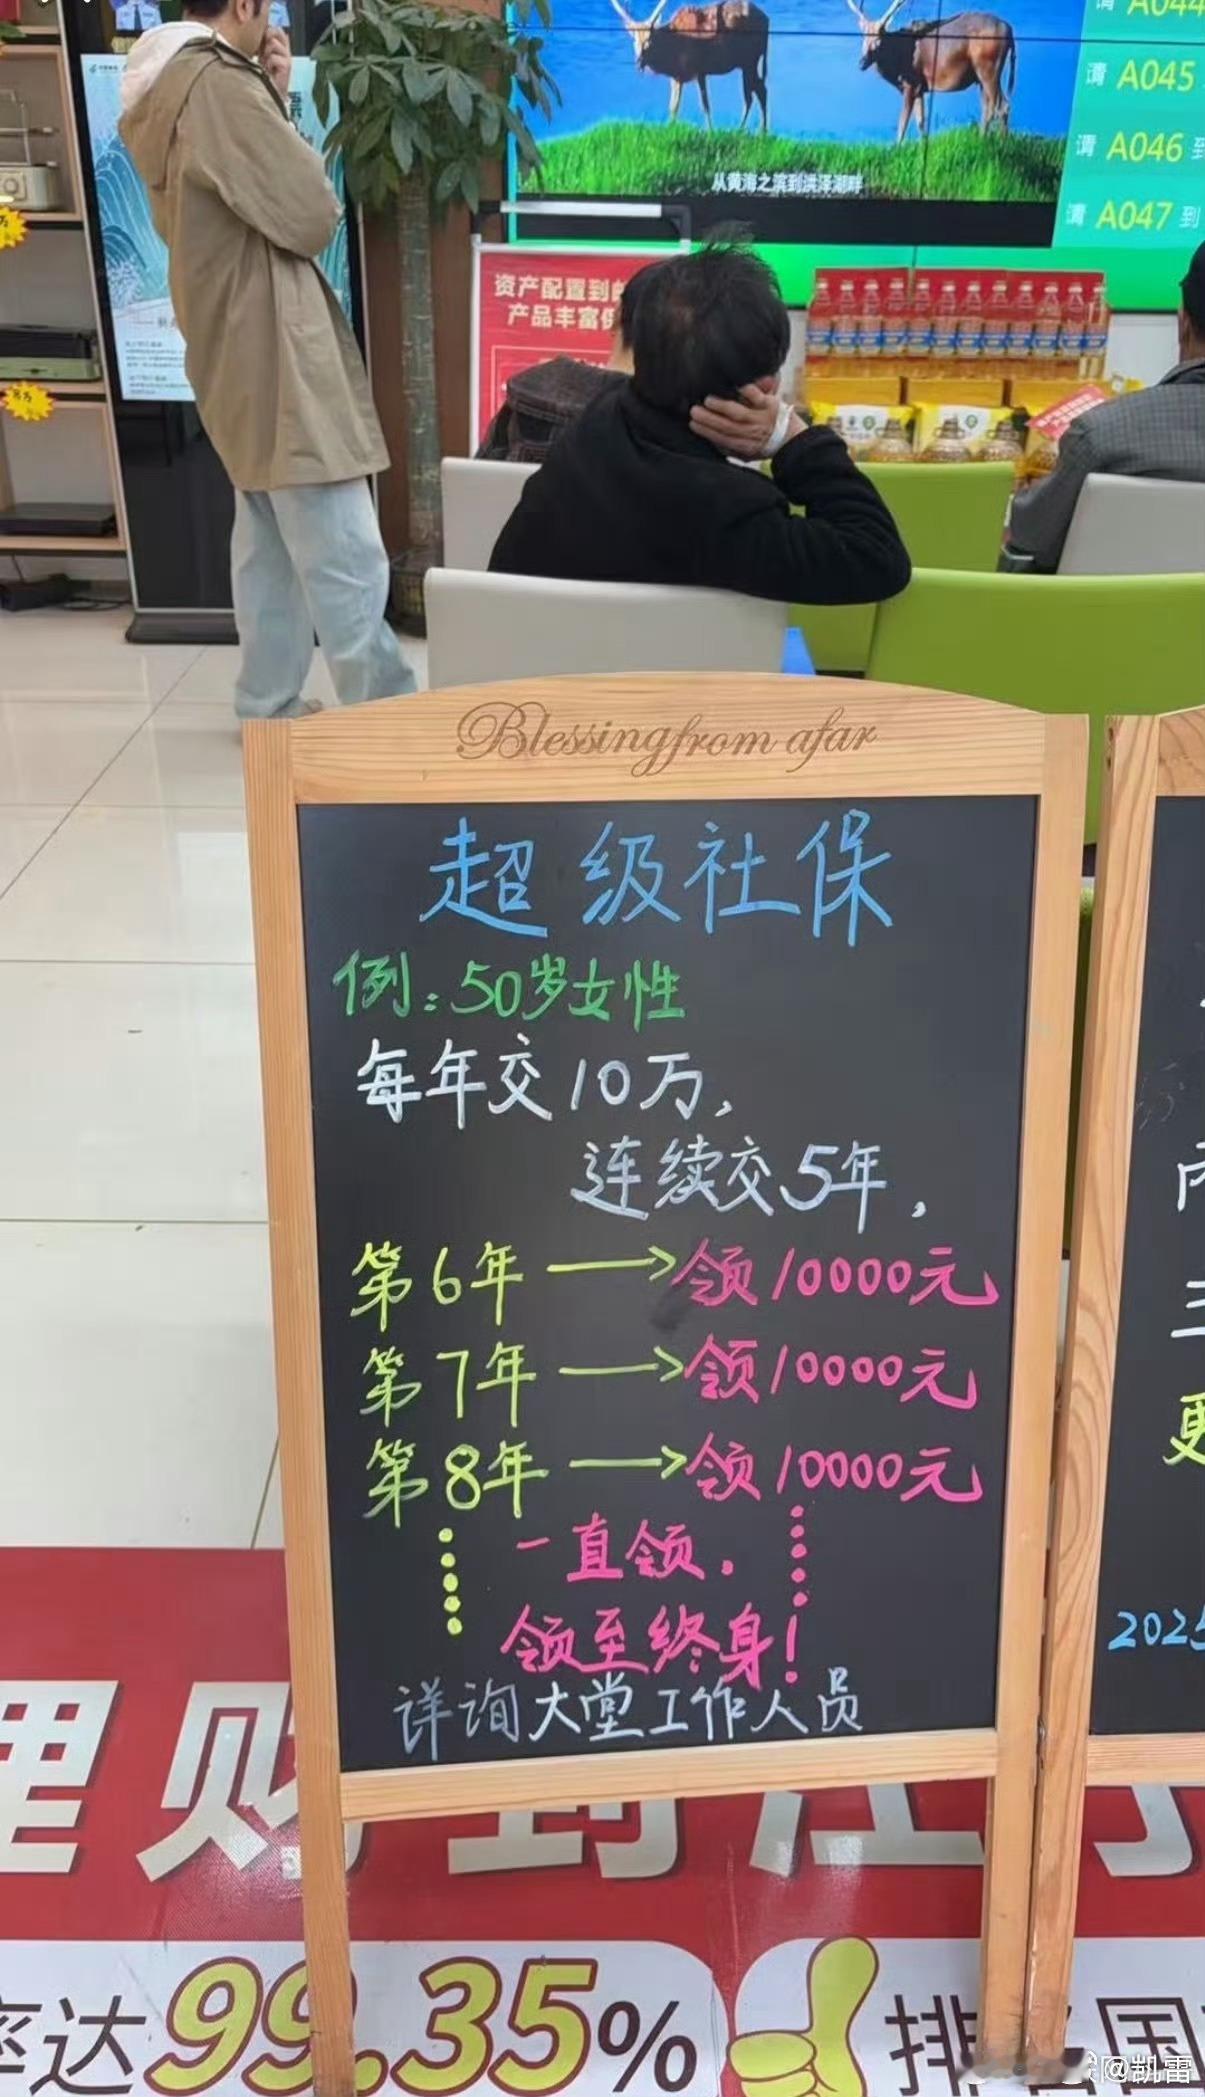 请 A044
请 A045
请 A046 到
请 A047 到
从黄海之滨到洪泽湖畔
资产配置到
产品丰富
Blessing from afar
超级社保
例:50岁女性
每年交10万,
连续交5年,
第6年→领10000元
第7年→领10000元
第8年→领10000元
一直领,
领至终身!
详询大堂工作人员
2025
理财到江
率达99.35%
排名国
@凯雷